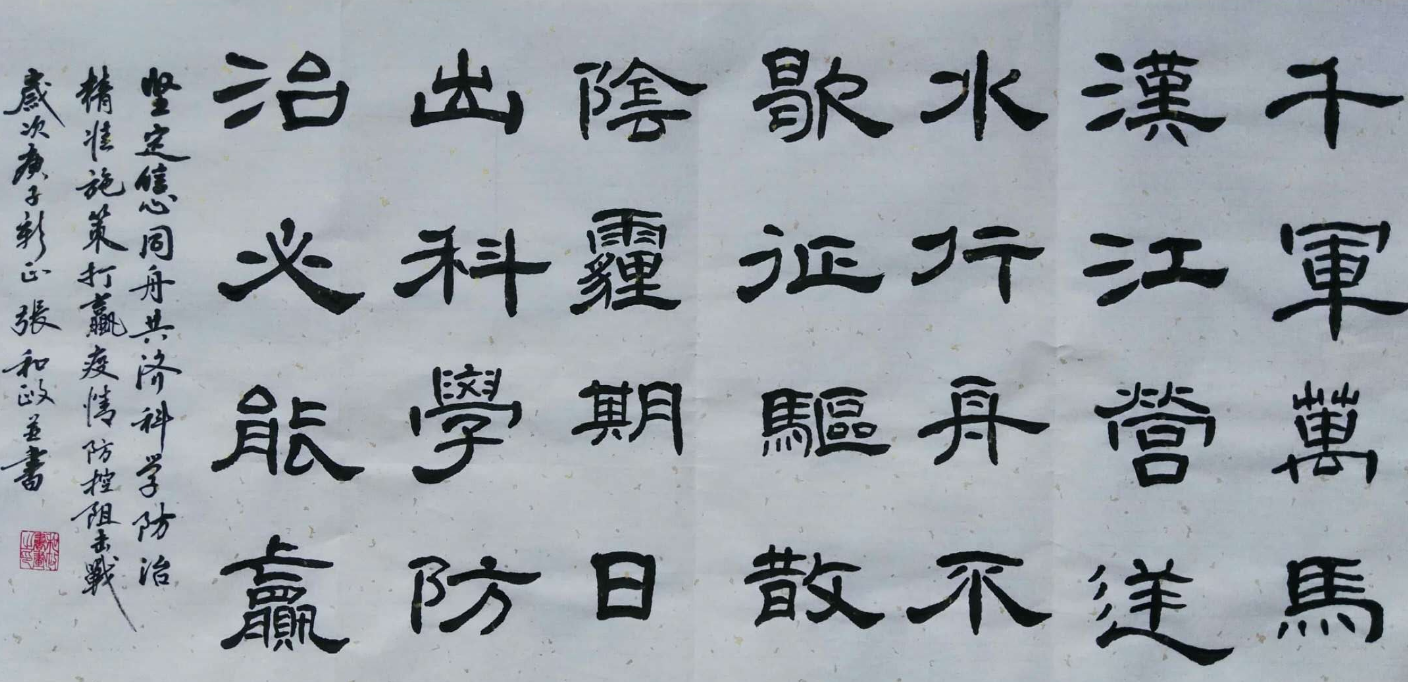 千軍萬馬
漢江營逆
水行舟不
歇征驅散
陰霾期日
出科學防
治必能贏
坚定信心同舟共济科学防治
精准施策打贏疫情防控阻击戰
歲次庚子新正張和政並書